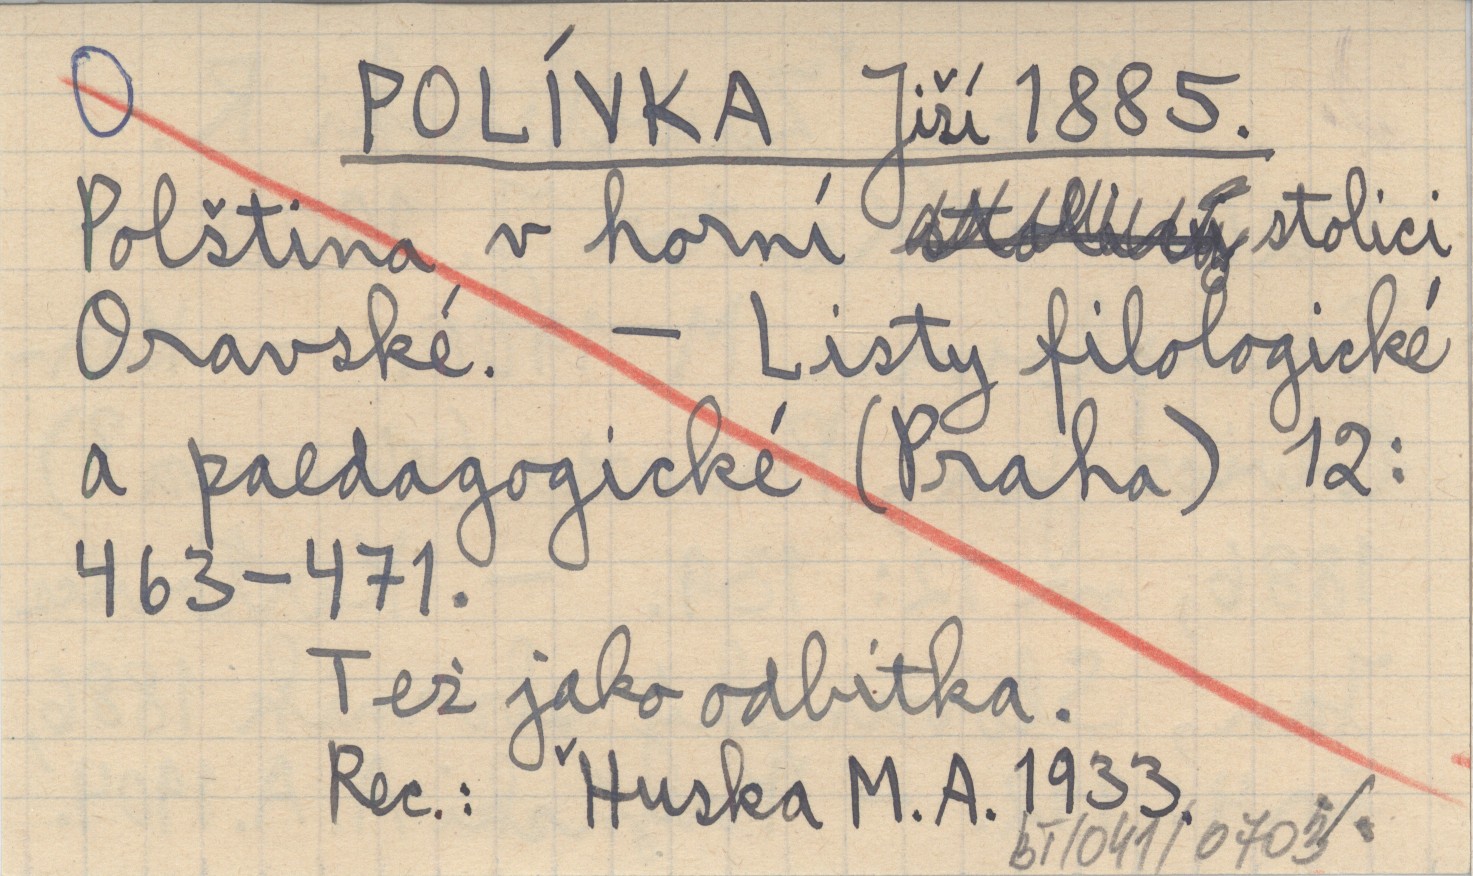 O POLÍVKA Jiří 1885.
Polština v horní stolici
Oravské. – Listy filologické
a paedagogické (Praha) 12:
463–471.
Też jako odbitka.
Rec.: Huska M. A. 1933.